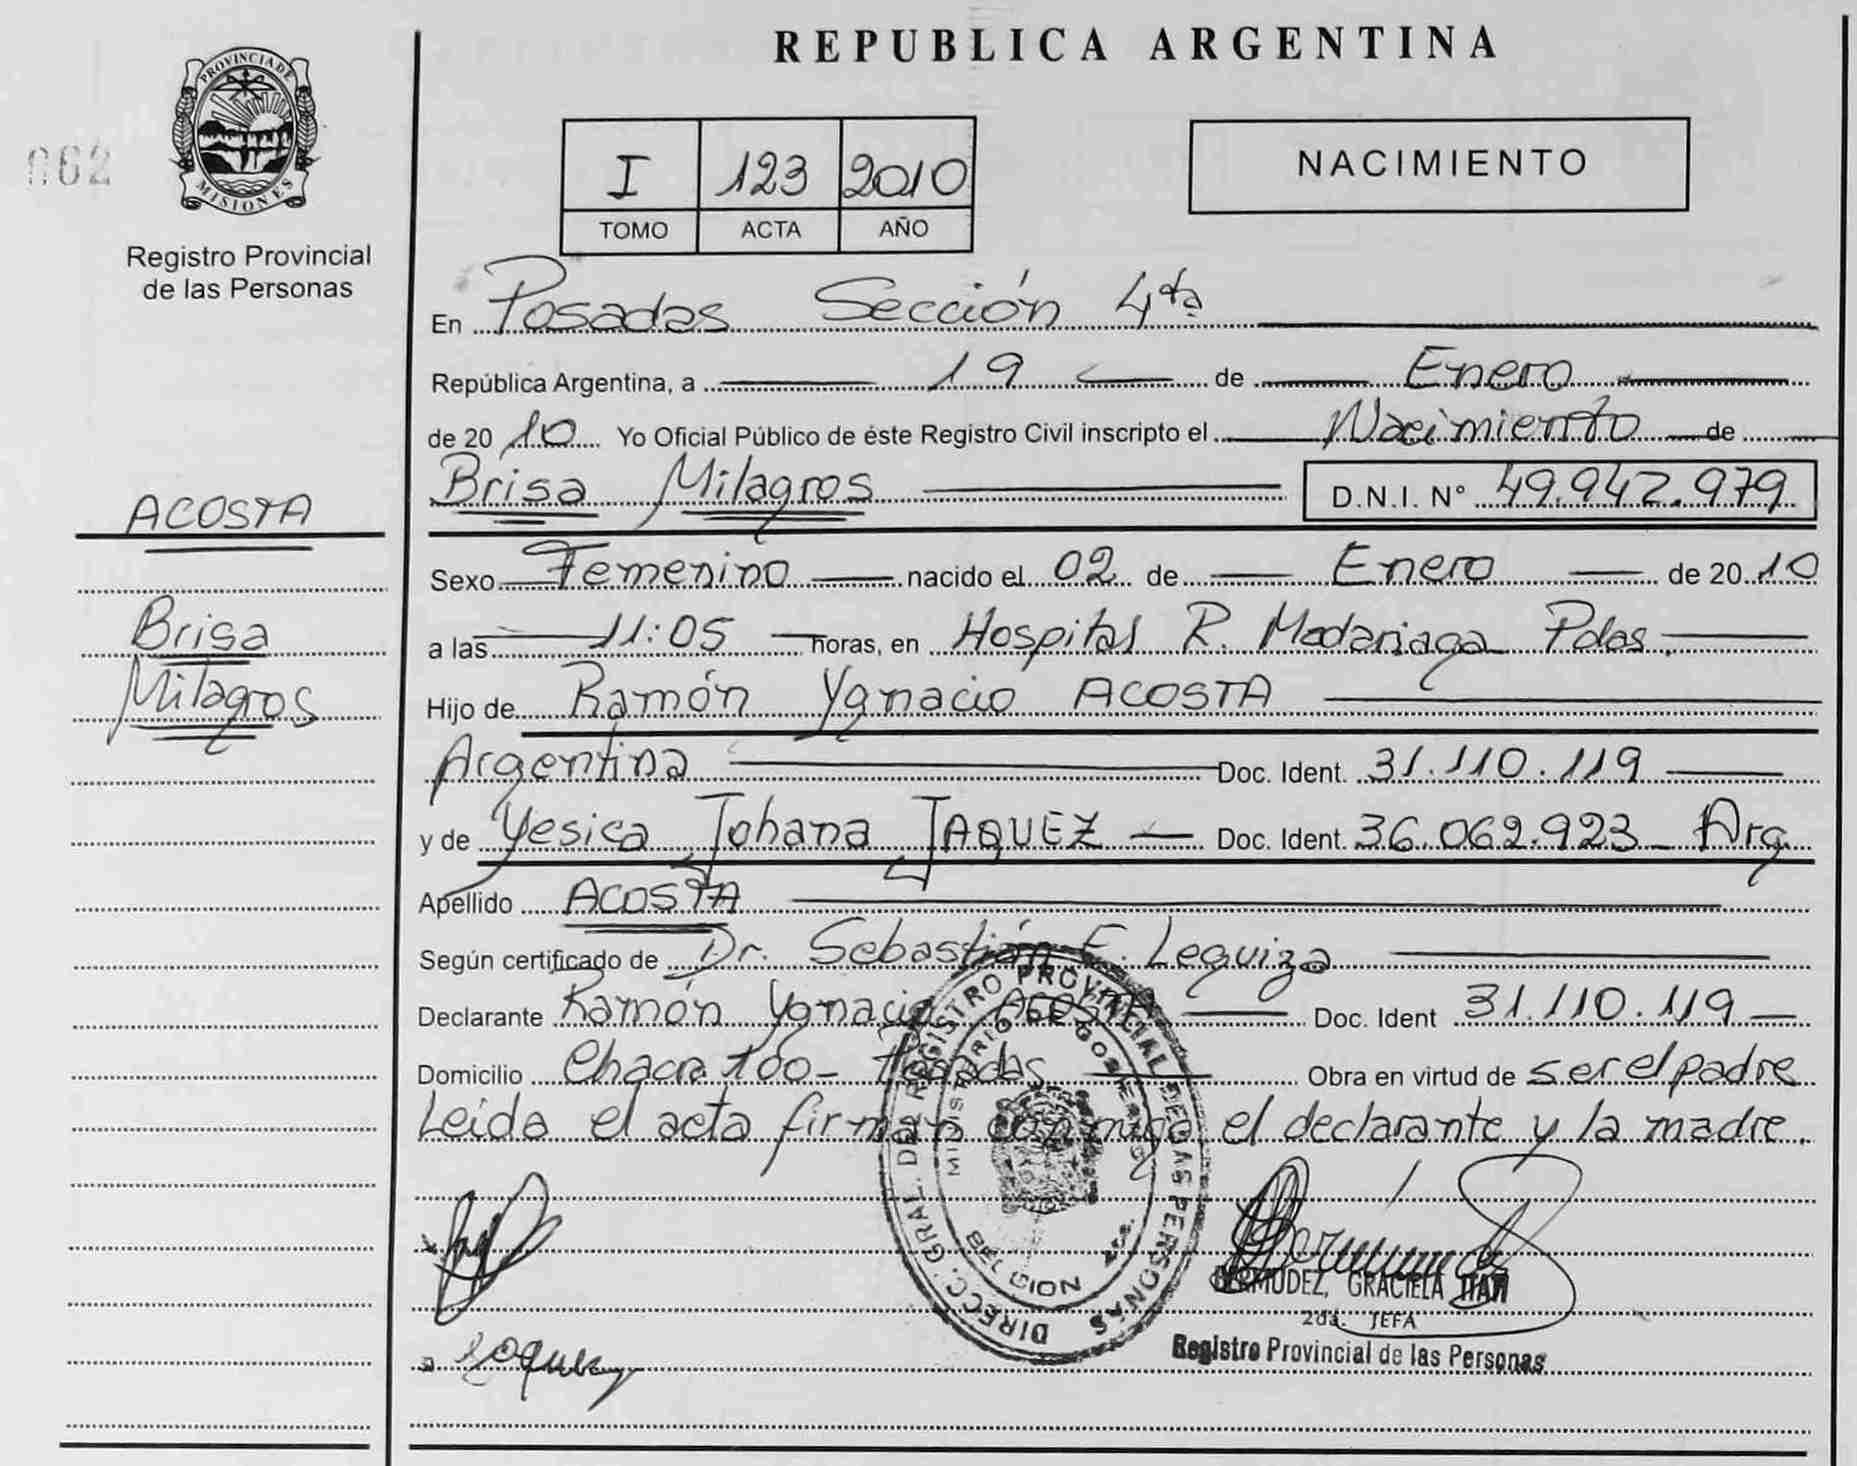 REPUBLICA ARGENTINA
PROVINCIA DE
MISIONES
062
Registro Provincial
de las Personas
I 123 2010
TOMO ACTA AÑO
NACIMIENTO
En Posadas Sección 4ta
República Argentina, a 19 de Enero
de 20 10 Yo Oficial Público de éste Registro Civil inscripto el Nacimiento de
Brisa Milagros D.N.I. N° 49.942.979
ACOSTA
Brisa
Milagros
Sexo Femenino nacido el 02 de Enero de 20 10
a las 11:05 horas, en Hospital R. Madariaga Pdas.
Hijo de Ramón Ygnacio ACOSTA
Argentina Doc. Ident. 31.110.119
y de Yesica Johana JAQUEZ Doc. Ident. 36.062.923 Arg.
Apellido ACOSTA
Según certificado de Dr. Sebastián E. Leguiza
Declarante Ramón Ygnacio ACOSTA Doc. Ident 31.110.119
Domicilio Chacra 100 - Posadas Obra en virtud de ser el padre
Leida el acta firman conmigo el declarante y la madre.
DIRECC. GRAL. DEL REGISTRO PROVINCIAL DE LAS PERSONAS
MINISTERIO DE GOBIERNO
BERMUDEZ, GRACIELA
2da. JEFA
Registro Provincial de las Personas